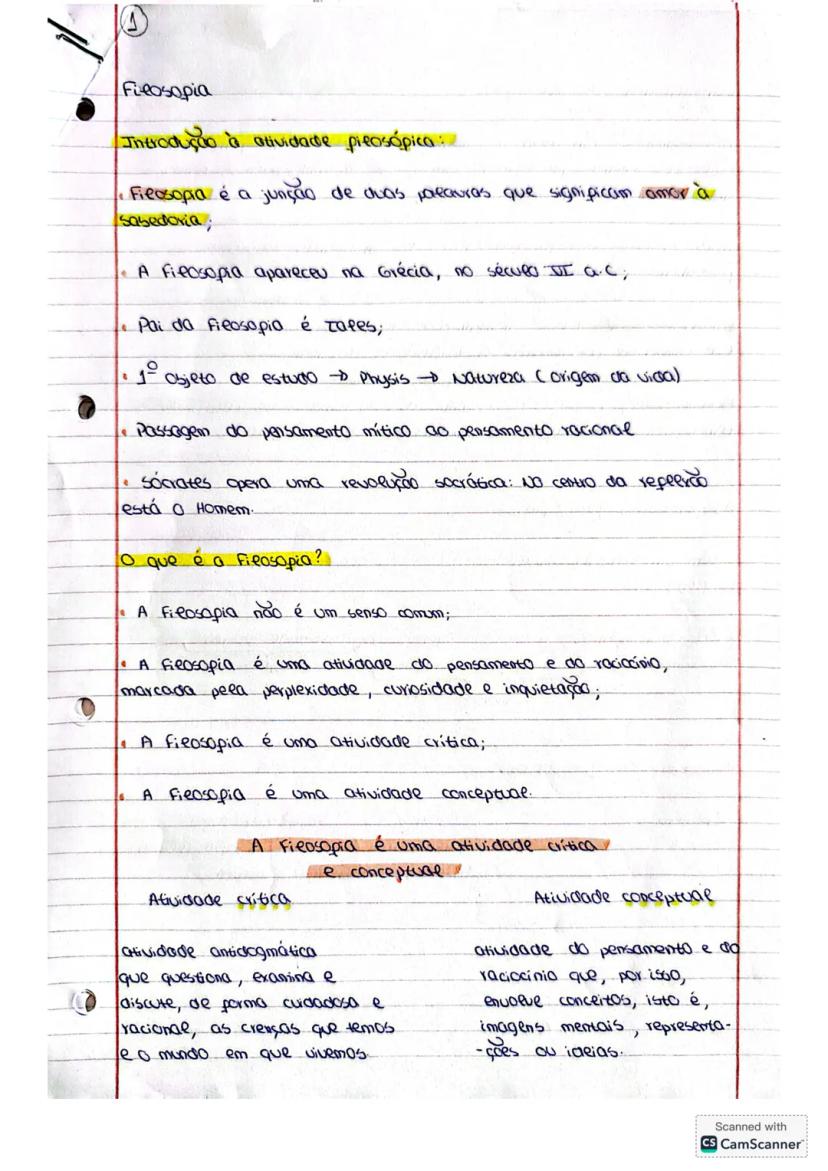 1
Filosofia
Introdução à atividade filosófica:
• Filosofia é a junção de duas palavras que significam amor à
sabedoria;
• A Filosofia apareceu na Grécia, no século VI a.C;
• Pai da Filosofia é Tales;
• 1º objeto de estudo → Physis → Natureza (origem da vida)
• Passagem do pensamento mítico ao pensamento racional
• Sócrates opera uma revolução socrática: No centro da reflexão
está o Homem.
O que é a Filosofia?
• A Filosofia não é um senso comum;
• A Filosofia é uma atividade do pensamento e do raciocínio,
marcada pela perplexidade, curiosidade e inquietação;
• A Filosofia é uma atividade crítica;
• A Filosofia é uma atividade conceptual.
A Filosofia é uma atividade crítica
e conceptual
Atividade crítica
atividade antidogmática
que questiona, examina e
discute, de forma cuidadosa e
racional, as crenças que temos
e o mundo em que vivemos.
Atividade conceptual
atividade do pensamento e do
raciocínio que, por isso,
envolve conceitos, isto é,
imagens mentais, representa-
-ções ou ideias.
Scanned with
CS CamScanner